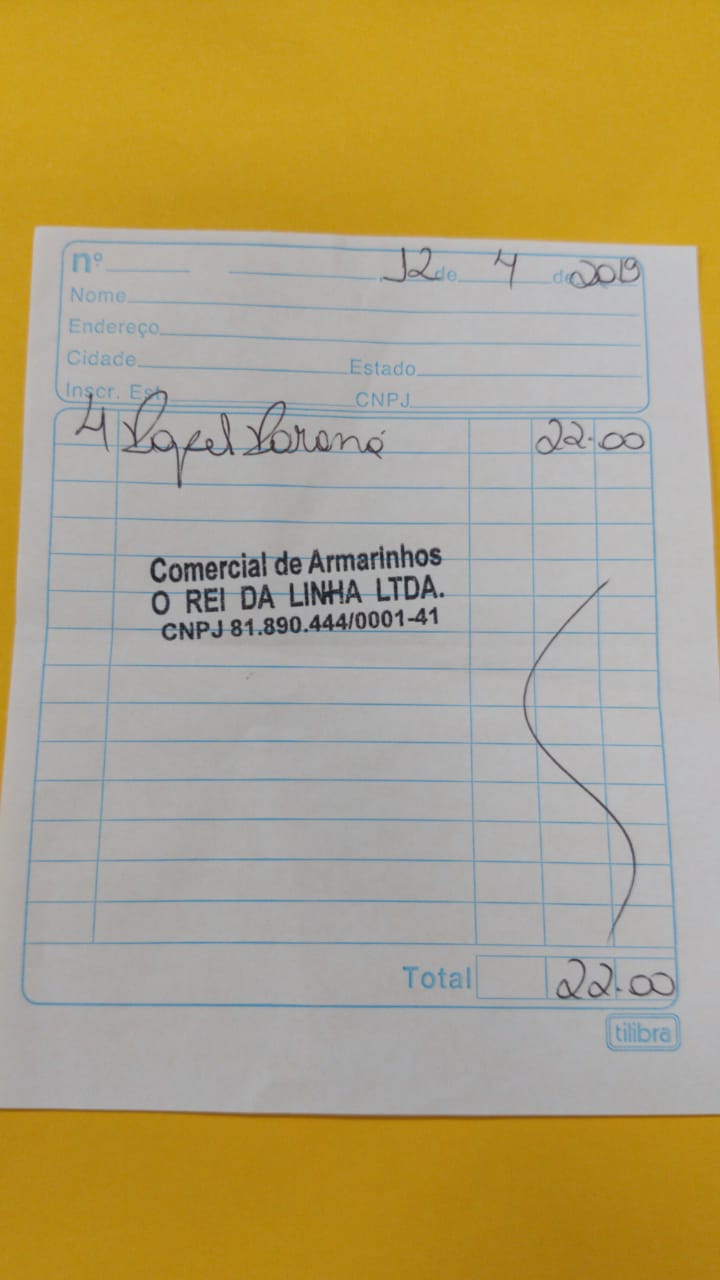 nº 12 de 4 de 2019
Nome
Endereço
Cidade Estado
Inscr. Est. CNPJ
4 Papel Paraná 22.00
Comercial de Armarinhos
O REI DA LINHA LTDA.
CNPJ 81.890.444/0001-41
Total 22.00
tilibra